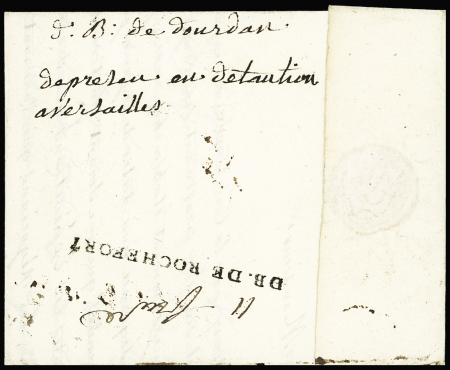 d. B: de dourdan
depresen en detantion
aversailles
DB. DE ROCHEFORT
11